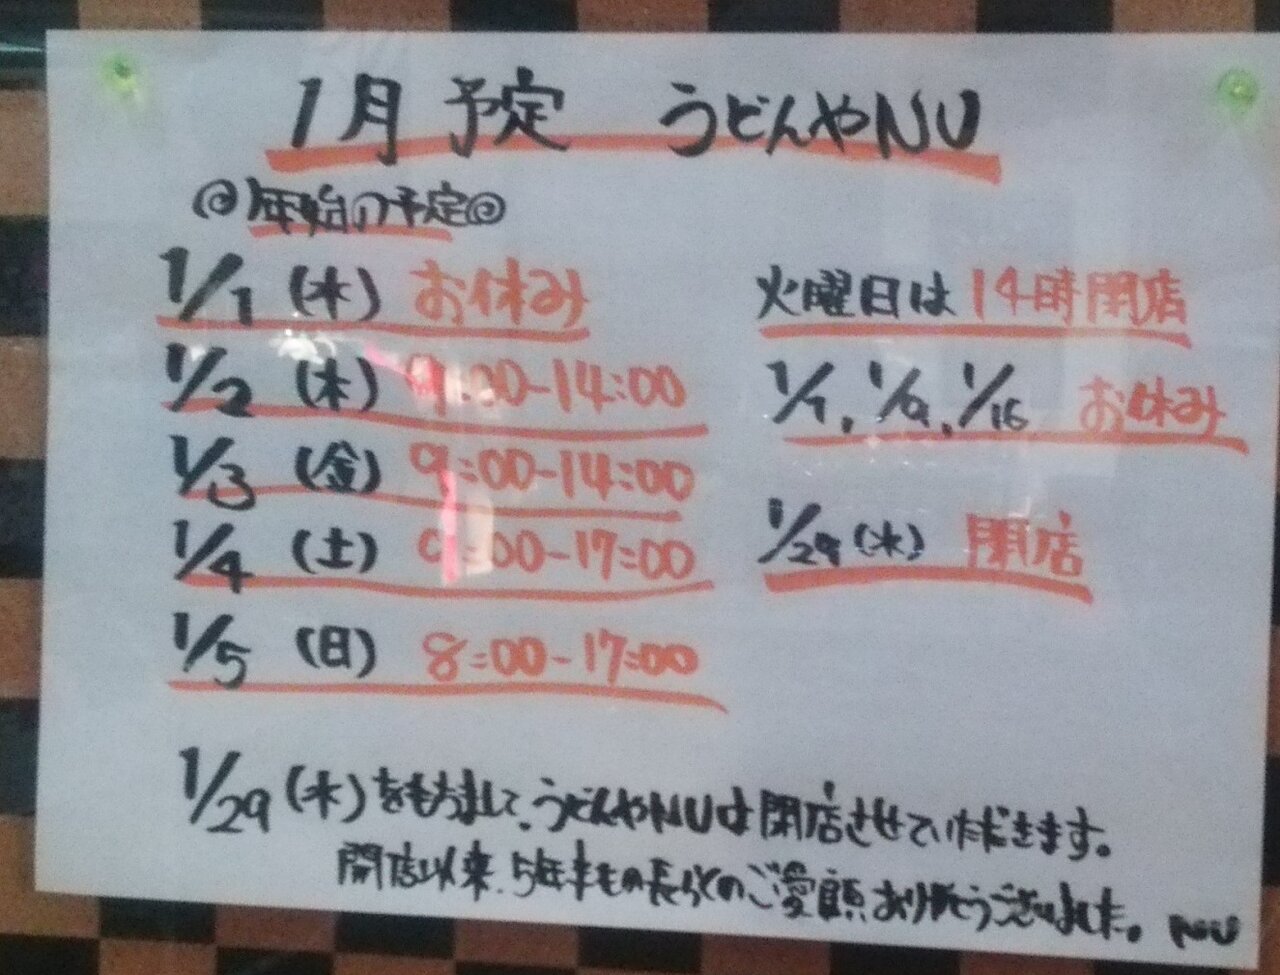 1月予定 うどんやNU
@年始の予定@
1/1 (水) お休み
1/2 (木) 9:00-14:00
1/3 (金) 9:00-14:00
1/4 (土) 9:00-17:00
1/5 (日) 8:00-17:00
火曜日は14時閉店
1/7、1/9、1/16 お休み
1/29(水) 閉店
1/29(水)をもちまして、うどんやNUは閉店させていただきます。
開店以来、5年半もの長らくのご愛顧ありがとうございました。 NU